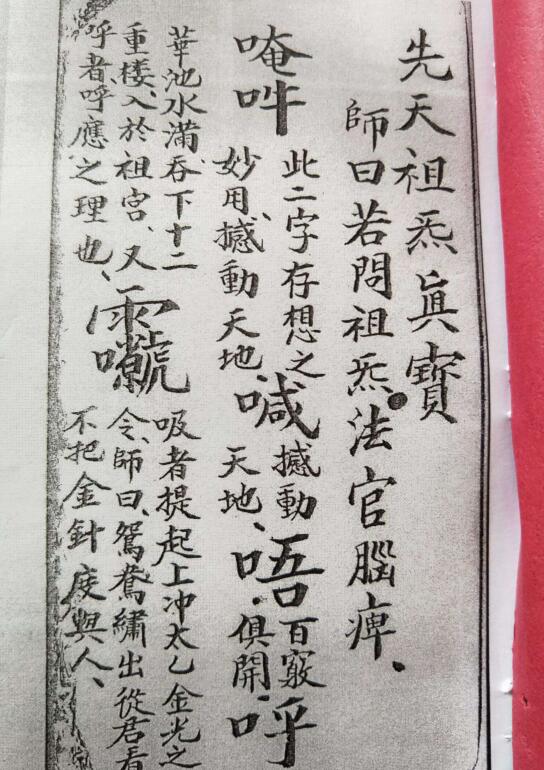 先天祖炁眞寶
師曰若問祖炁法官腦痺、
唵吽
此二字存想之
妙用、撼動天地、
喊
撼動
天地、
唔
百竅
俱開、
呼
華池水滿、吞下十二
重楼、入於祖宮、又
呼者、呼應之理也、
吸者提起上冲太乙金光之
令、師曰、鴛鴦繡出從君看
不把金針度與人、